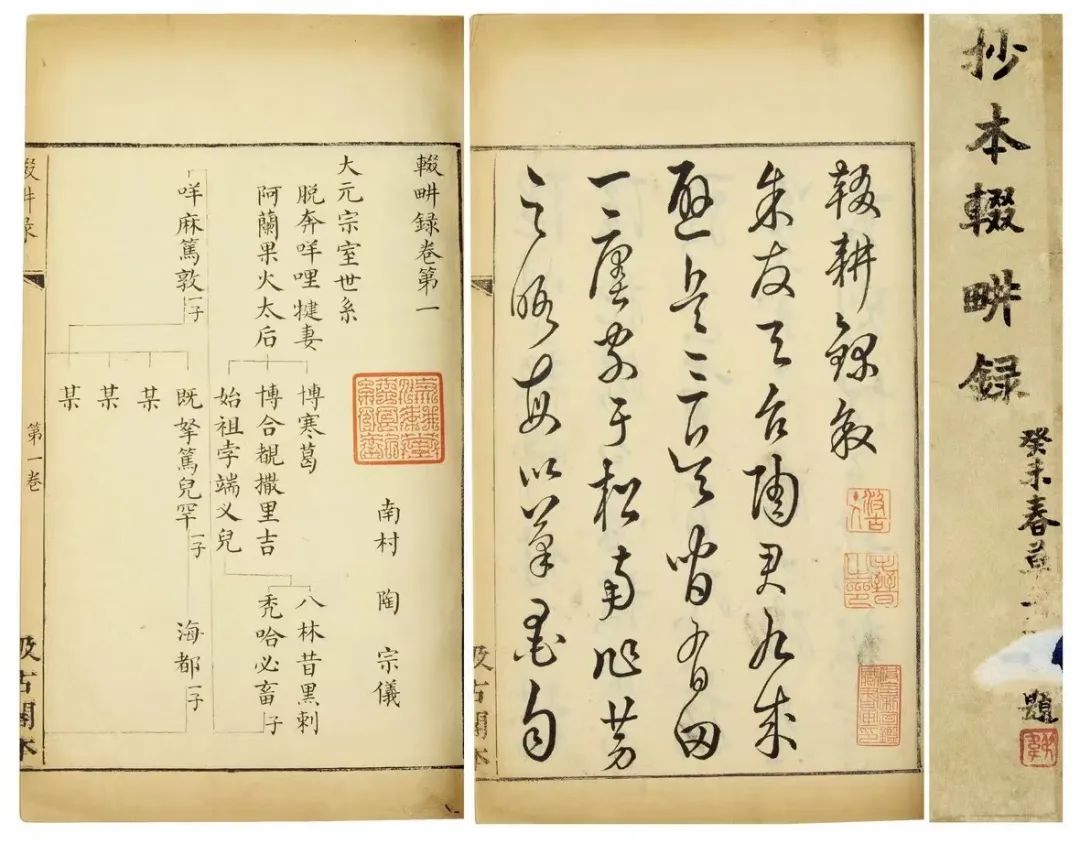 抄本輟畊録
癸未春
題
輟耕錄敘
余友天台陶君九成
避兵三吳間有田
一廛家于松南作勞
之暇每以筆墨自
輟畊録卷第一
南村 陶 宗儀
大元宗室世系
脱奔咩哩犍妻
阿蘭果火太后
博寒葛
博合覩撒里吉
始祖孛端义兒
八林昔黑剌
禿哈必畜子
咩麻篤敦一子
既拏篤兒罕一子
某
某
某
海都一子
第一卷
汲古閣本